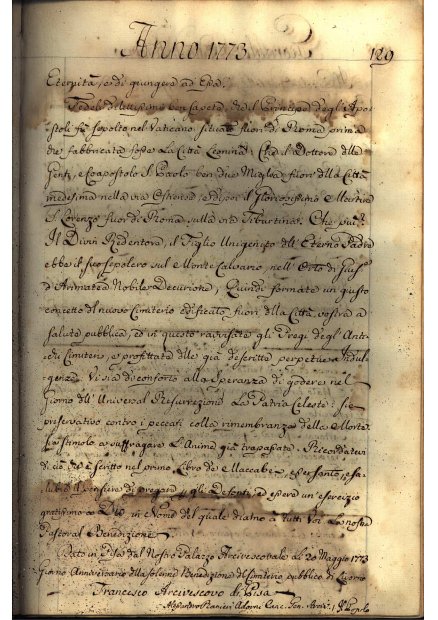 Anno 1773
129
Eternità, e di giungere ad Essa.
Fedeli dilettissimi voi sapete, che il Principe degli Apo-
stoli fu sepolto nel Vaticano situato fuori di Roma prima
che fabbricata fosse la Città Leonina; Che il Dottore delle
Genti, e Coapostolo S. Paolo ben due Miglia fuori della Città
medesima nella via Ostiense, e di poi il Gloriosissimo Martire
S. Lorenzo fuor di Roma sulla via Tiburtina. Che più?
Il Divin Redentore, il Figlio Unigenito dell'Eterno Padre
ebbe il suo Sepolcro sul Monte Calvario, nell'Orto di Gius.e
d'Arimatea Nobile Decurione; Quindi formate un giusto
concetto del nuovo Cimiterio edificato fuori della Città vostra a
salute pubblica, ed in questo ravvisate gli Pregi degl'Anti-
chi Cimiteri, e profittate delle già descritte perpetue Indul-
genze. Vi sia di conforto alla Speranza di godere nel
Giorno dell'Universal Resurrezione la Patria Celeste: di
preservativo contro i peccati colla rimembranza della Morte.
Di stimolo a suffragare l'Anime già trapassate. Ricordatevi
di ciò, che è scritto nel primo Libro de Maccabei, esser santo, e sa-
lubre il pensiere di pregare per gli Defonti, ed essere un'esercizio
gratissimo a Dio, in Nome del quale diamo a tutti Voi la nostra
Pastoral Benedizione.
Dato in Pisa dal Nostro Palazzo Arcivescovale li 20 Maggio 1773
Giorno Anniversario della solenne Benedizione del Cimiterio pubblico di Livorno
Francesco Arcivescovo di Pisa
Alessandro Ranieri Adorni Canc.